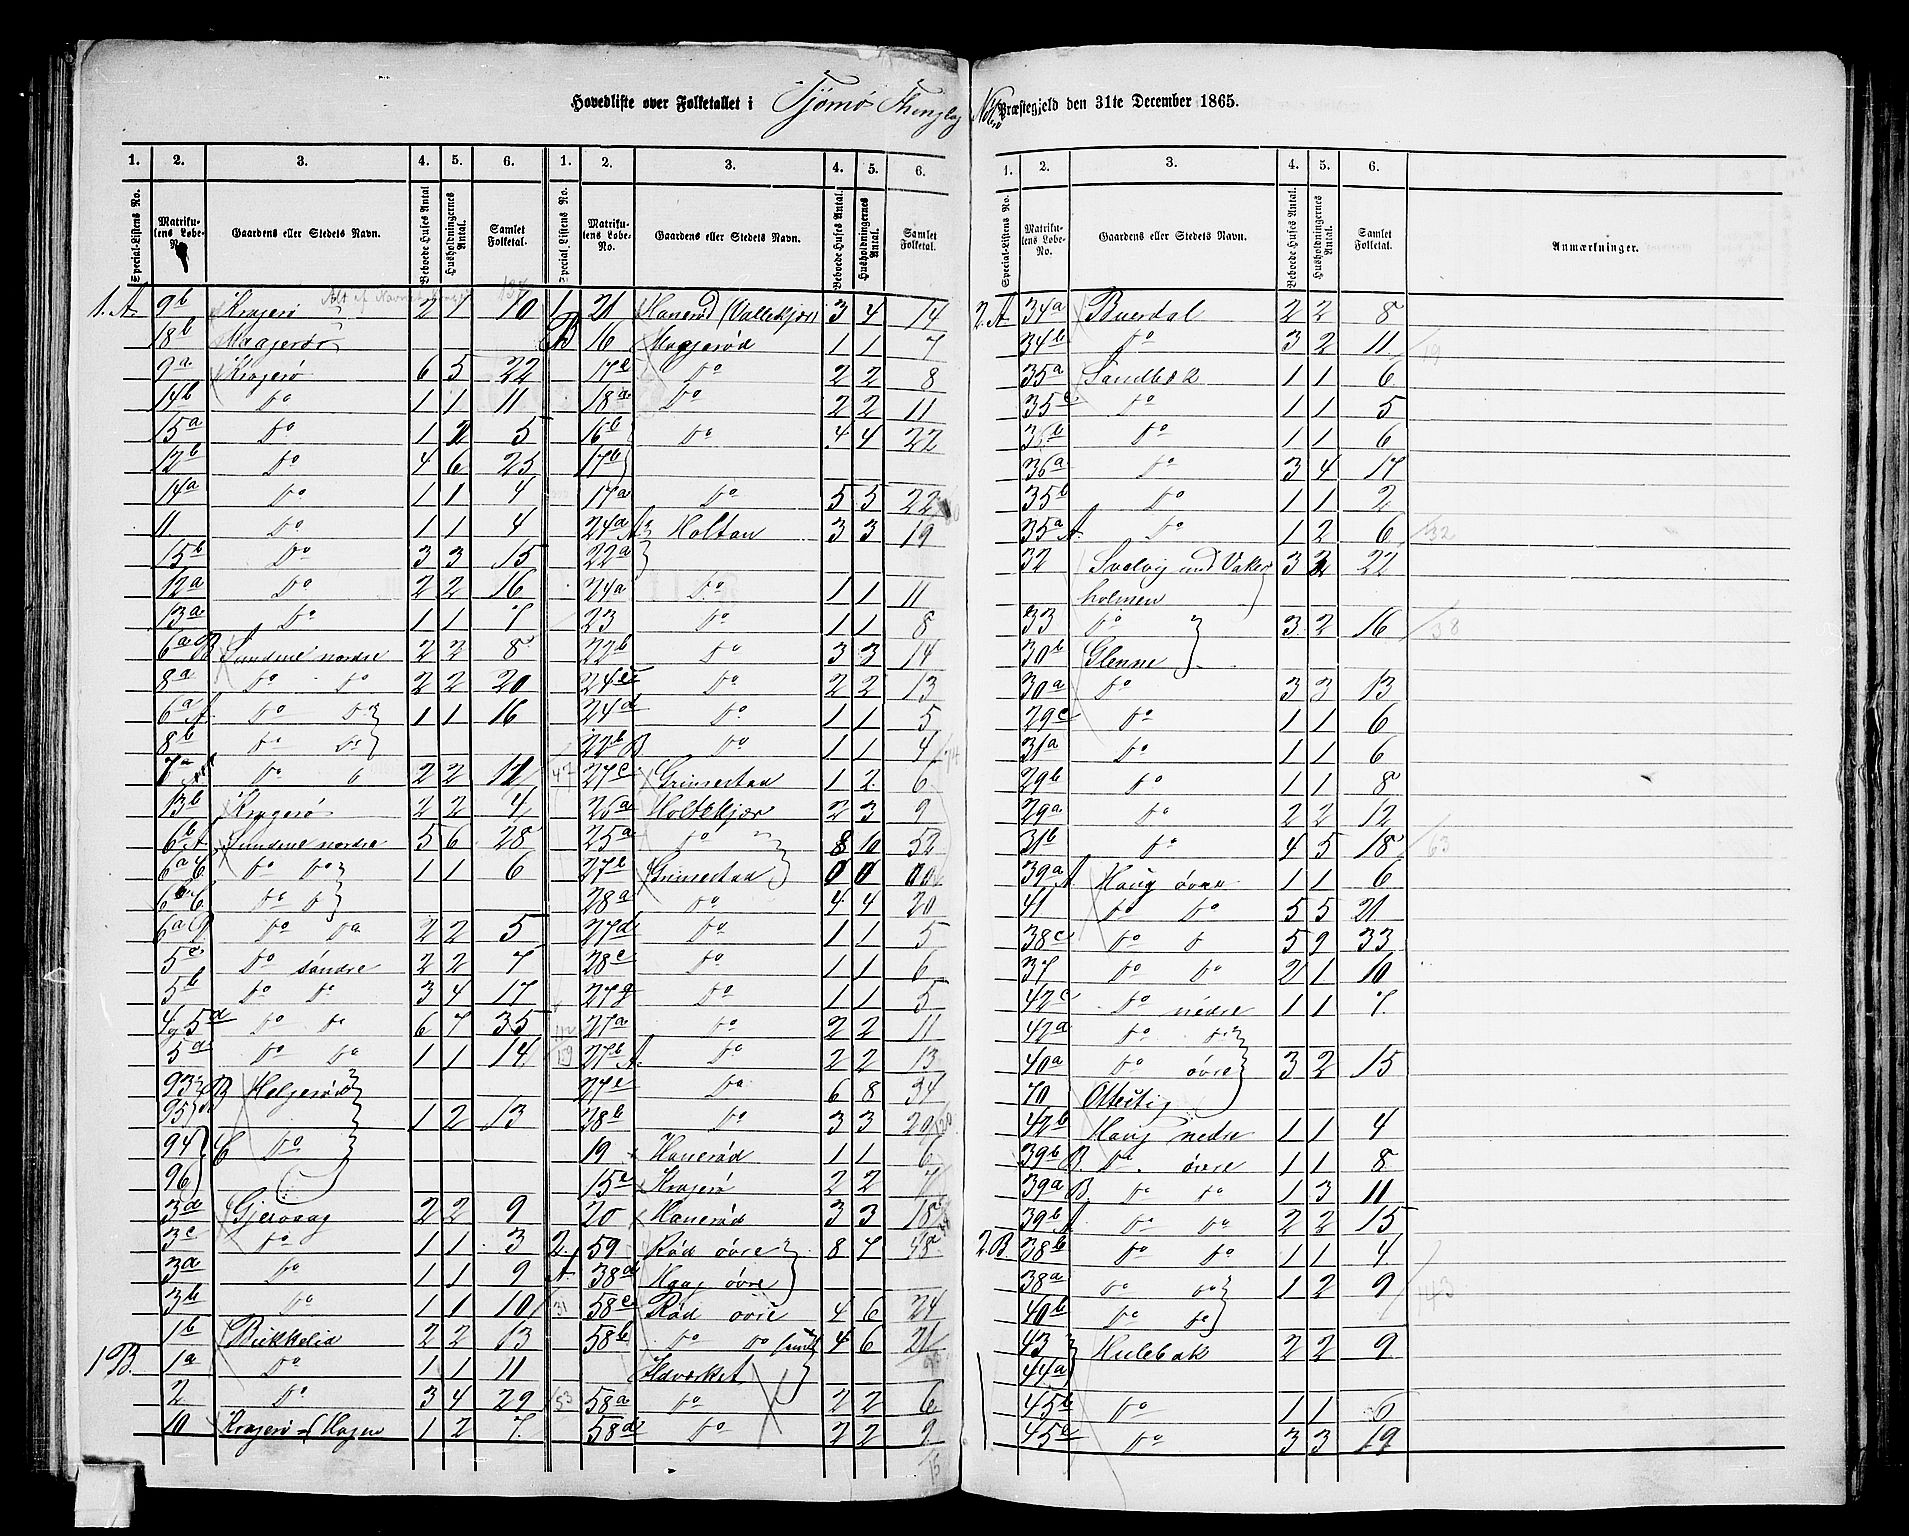 Hovedliste over Folketallet i Tjømø Thinglag Nøterø Præstegjeld den 31te December 1865.
1. 2. 3. 4. 5. 6. 1. 2. 3. 4. 5. 6. 1. 2. 3. 4. 5. 6.
Special-Listens No. Matrikulens Løbe-No. Gaardens eller Stedets Navn. Beboede Huses Antal Husholdningernes Antal. Samlet Folketal. Special-Listens No. Matrikulens Løbe-No. Gaardens eller Stedets Navn. Beboede Huses Antal. Husholdningernes Antal. Samlet Folketal. Special-Listens No. Matrikulens Løbe-No. Gaardens eller Stedets Navn. Beboede Huses Antal. Husholdningernes Antal. Samlet Folketal. Anmærkninger.
1. A. 9b Kragerø 2 10
18b Maagerø
9a Kragerø 6 5 22
14b Do 1 1 11
15a Do 1 2 5
12b Do 4 6 25
14a Do 1 1 4
11 Do 1 1 4
15b Do 3 3 15
12a Do 2 2 16
13a Do 1 1 7
6a B Sundene nordre 2 2 8
8a Do Do 2 2 20
6a A. Do Do 1 1 16
8b Do Do
7a Do 2 2 12
13b Kragerø 2 2 4
6b A Sundene nordre 5 6 28
6a C Do Do 1 1 6
6b C Do Do
6a D Do Do 2 2 5
5c Do søndre 2 2 7
5b Do Do 3 4 17
4, 5d Do Do 6 7 35
5a Do Do 1 1 14
93 B Helgerød
95 1 2 13
94 C Do
96
3d Gjervaag 2 2 9
3c Do 1 1 3
3a Do 1 1 9
3b Do 1 1 10
1b Bukkelid 2 2 13
1 B. 1a Do 1 1 11
2 Do 3 4 29
10 Kragerø Hagen 1 2 7.
1 B 21 Hanerød (Vallekjær) 3 4 14
16 Maagerød 1 1 7
17c Do 2 2 8
18a Do 2 2 11
16b Do 4 4 22
17b
17a Do 5 5 22
24a A Holtan 3 3 19
22a
24a Do 1 1 11
23 Do 1 1 8
22b Do 3 3 14
24c Do 2 2 13
24d Do 1 1 5
22b B Do 1 1 4
47 27c Grimestad 1 2 6
26a Holtekjær 2 3 9
25a Do 8 10 52
27e Grimestad 0 0 00
28a Do 4 4 20
27d Do 1 1 5
28c Do 1 1 6
27g Do 1 1 5
27a Do 2 2 11
27b A. Do 2 2 13
27e Do 6 8 34
28b Do 3 3 20
19 Hanerød 1 1 6
15c Kragerø 2 2 7
20 Hanerød 3 3 18
2. A 59 Rød øvre 8 7 48
38d Haug øvre
31 58c Rød øvre 4 6 24
58b Do Do 4 6 21
53 58a Do 2 2 6
58d Do 2 2 9
2. A 34a Buerdal 2 2 8
34b Do 3 2 11
35a Sandbæk 1 1 6
35c Do 1 1 5
36b Do 1 1 6
36a Do 3 4 17
35b Do 1 1 2
35a A. Do 1 2 6 32
32 Svelvig med Vaker 3 22
holmen
33 Do 3 2 16 38
30b Glenne
30a Do 3 3 13
29c Do 1 1 6
31a Do 1 1 6
29b Do 1 1 8
29a Do 2 2 12
31b Do 4 5 18 63
39a A. Haug øvre 1 1 6
41 Do Do 5 5 21
38c Do Do 5 9 33
37 Do Do 2 1 10
42c Do nedre 1 1 7
42a Do Do
40a Do øvre 3 2 15
70 Ottestig
42b Haug nedre 1 1 4
39b B. Do øvre 1 1 8
39a B Do Do 1 3 11
39b A. Do Do 2 2 15
2. B. 38b Do Do 1 1 4
38a Do Do 1 2 9 143
40b Do Do
43 Hulebak 2 2 9
44a
45b Do 1 1 6
45a Do 3 3 19